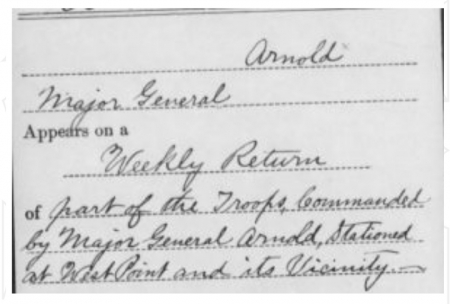 Arnold
Major General
Appears on a
Weekly Return
of part of the Troops, Commanded
by Major General Arnold, Stationed
at West Point and its Vicinity.—